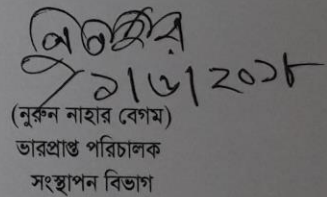 ১৭/৬/২০১৮
(নুরুন নাহার বেগম)
ভারপ্রাপ্ত পরিচালক
সংস্থাপন বিভাগ